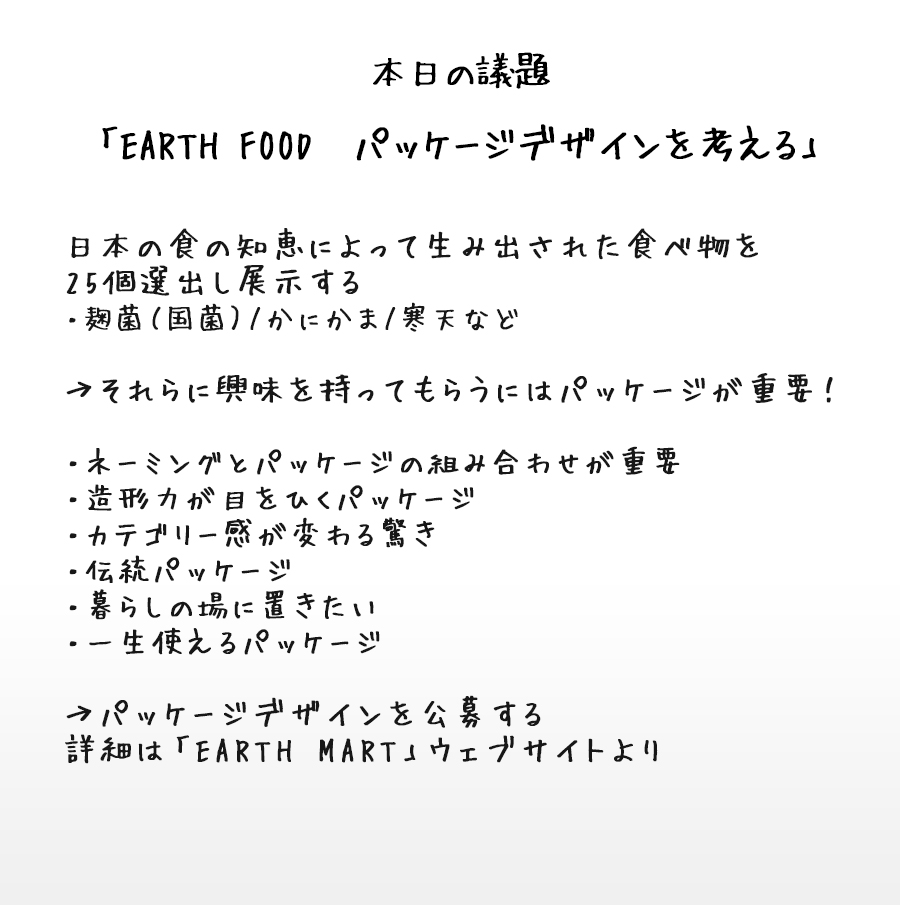 本日の議題
「EARTH FOOD　パッケージデザインを考える」
日本の食の知恵によって生み出された食べ物を
25個選出し展示する
・麹菌(国菌)/かにかま/寒天など
→それらに興味を持ってもらうにはパッケージが重要！
・ネーミングとパッケージの組み合わせが重要
・造形力が目をひくパッケージ
・カテゴリー感が変わる驚き
・伝統パッケージ
・暮らしの場に置きたい
・一生使えるパッケージ
→パッケージデザインを公募する
詳細は「EARTH MART」ウェブサイトより